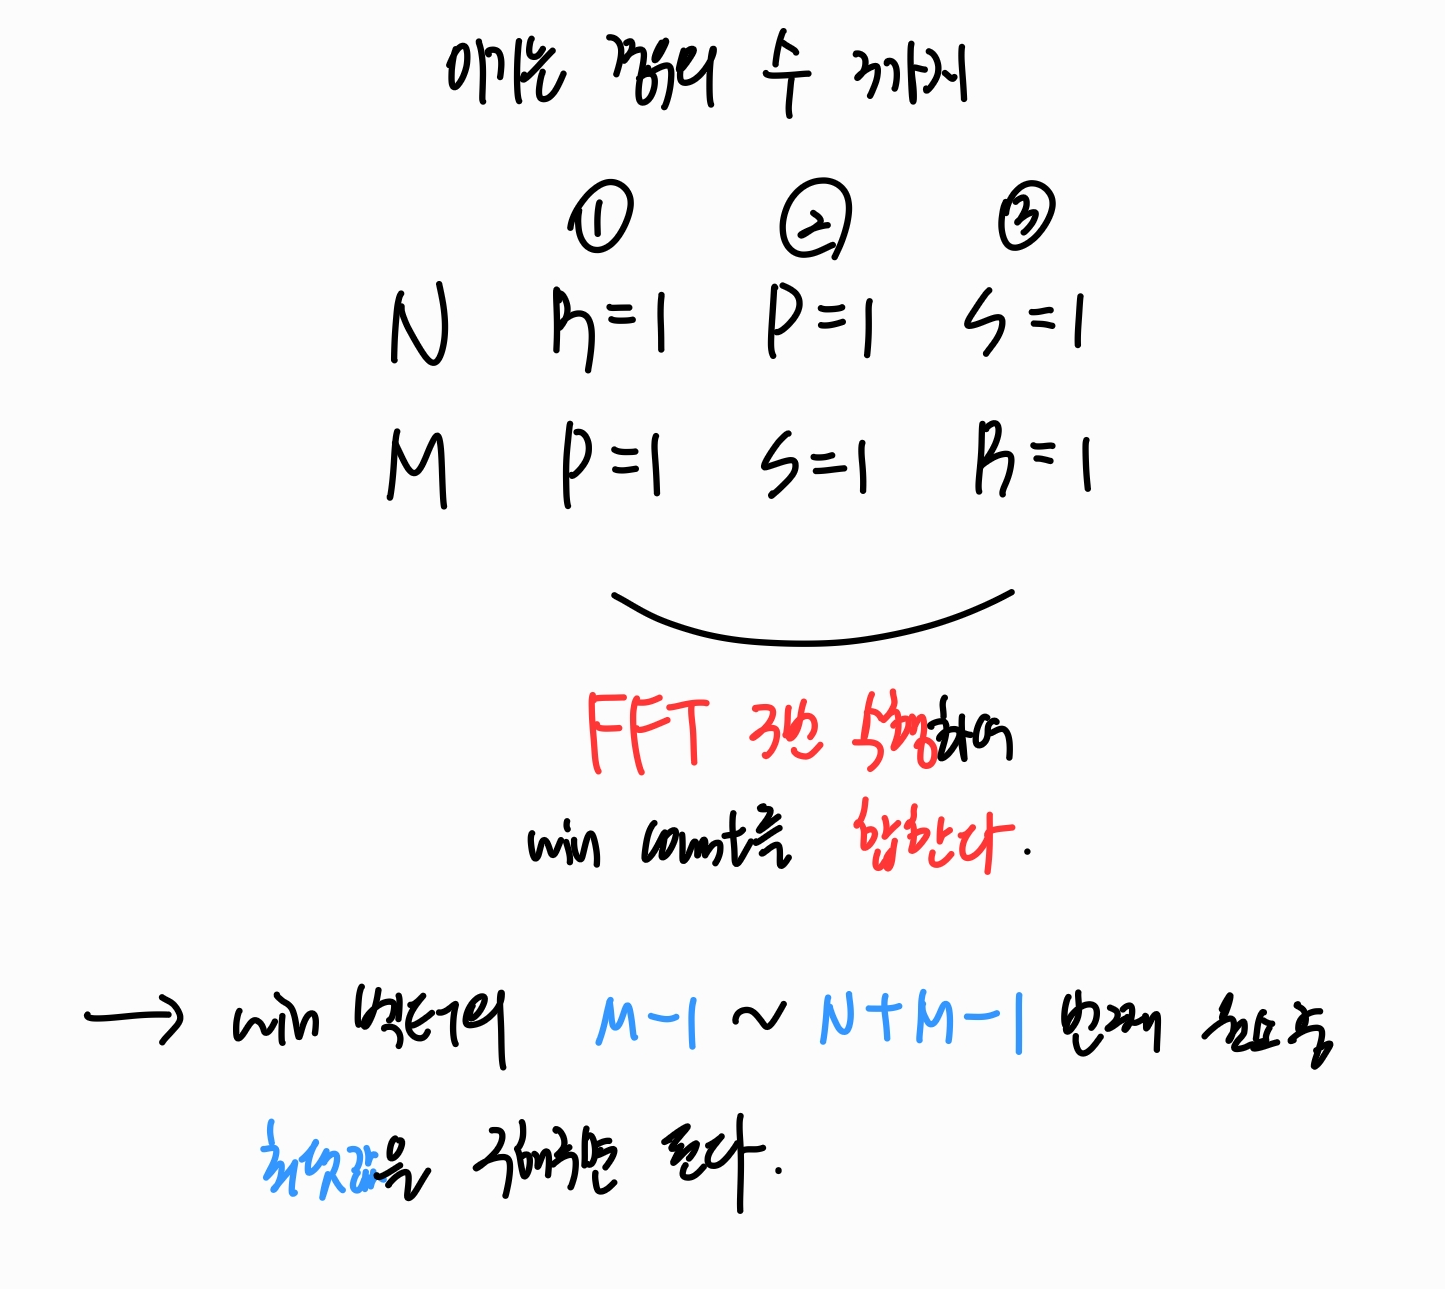 이기는 경우의 수 3가지
① ② ③
N R=1 P=1 S=1
M P=1 S=1 R=1
FFT 3번 수행하여
win count를 합한다.
→ win 벡터의 M-1 ~ N+M-1 번째 원소 중
최댓값을 구해주면 된다.